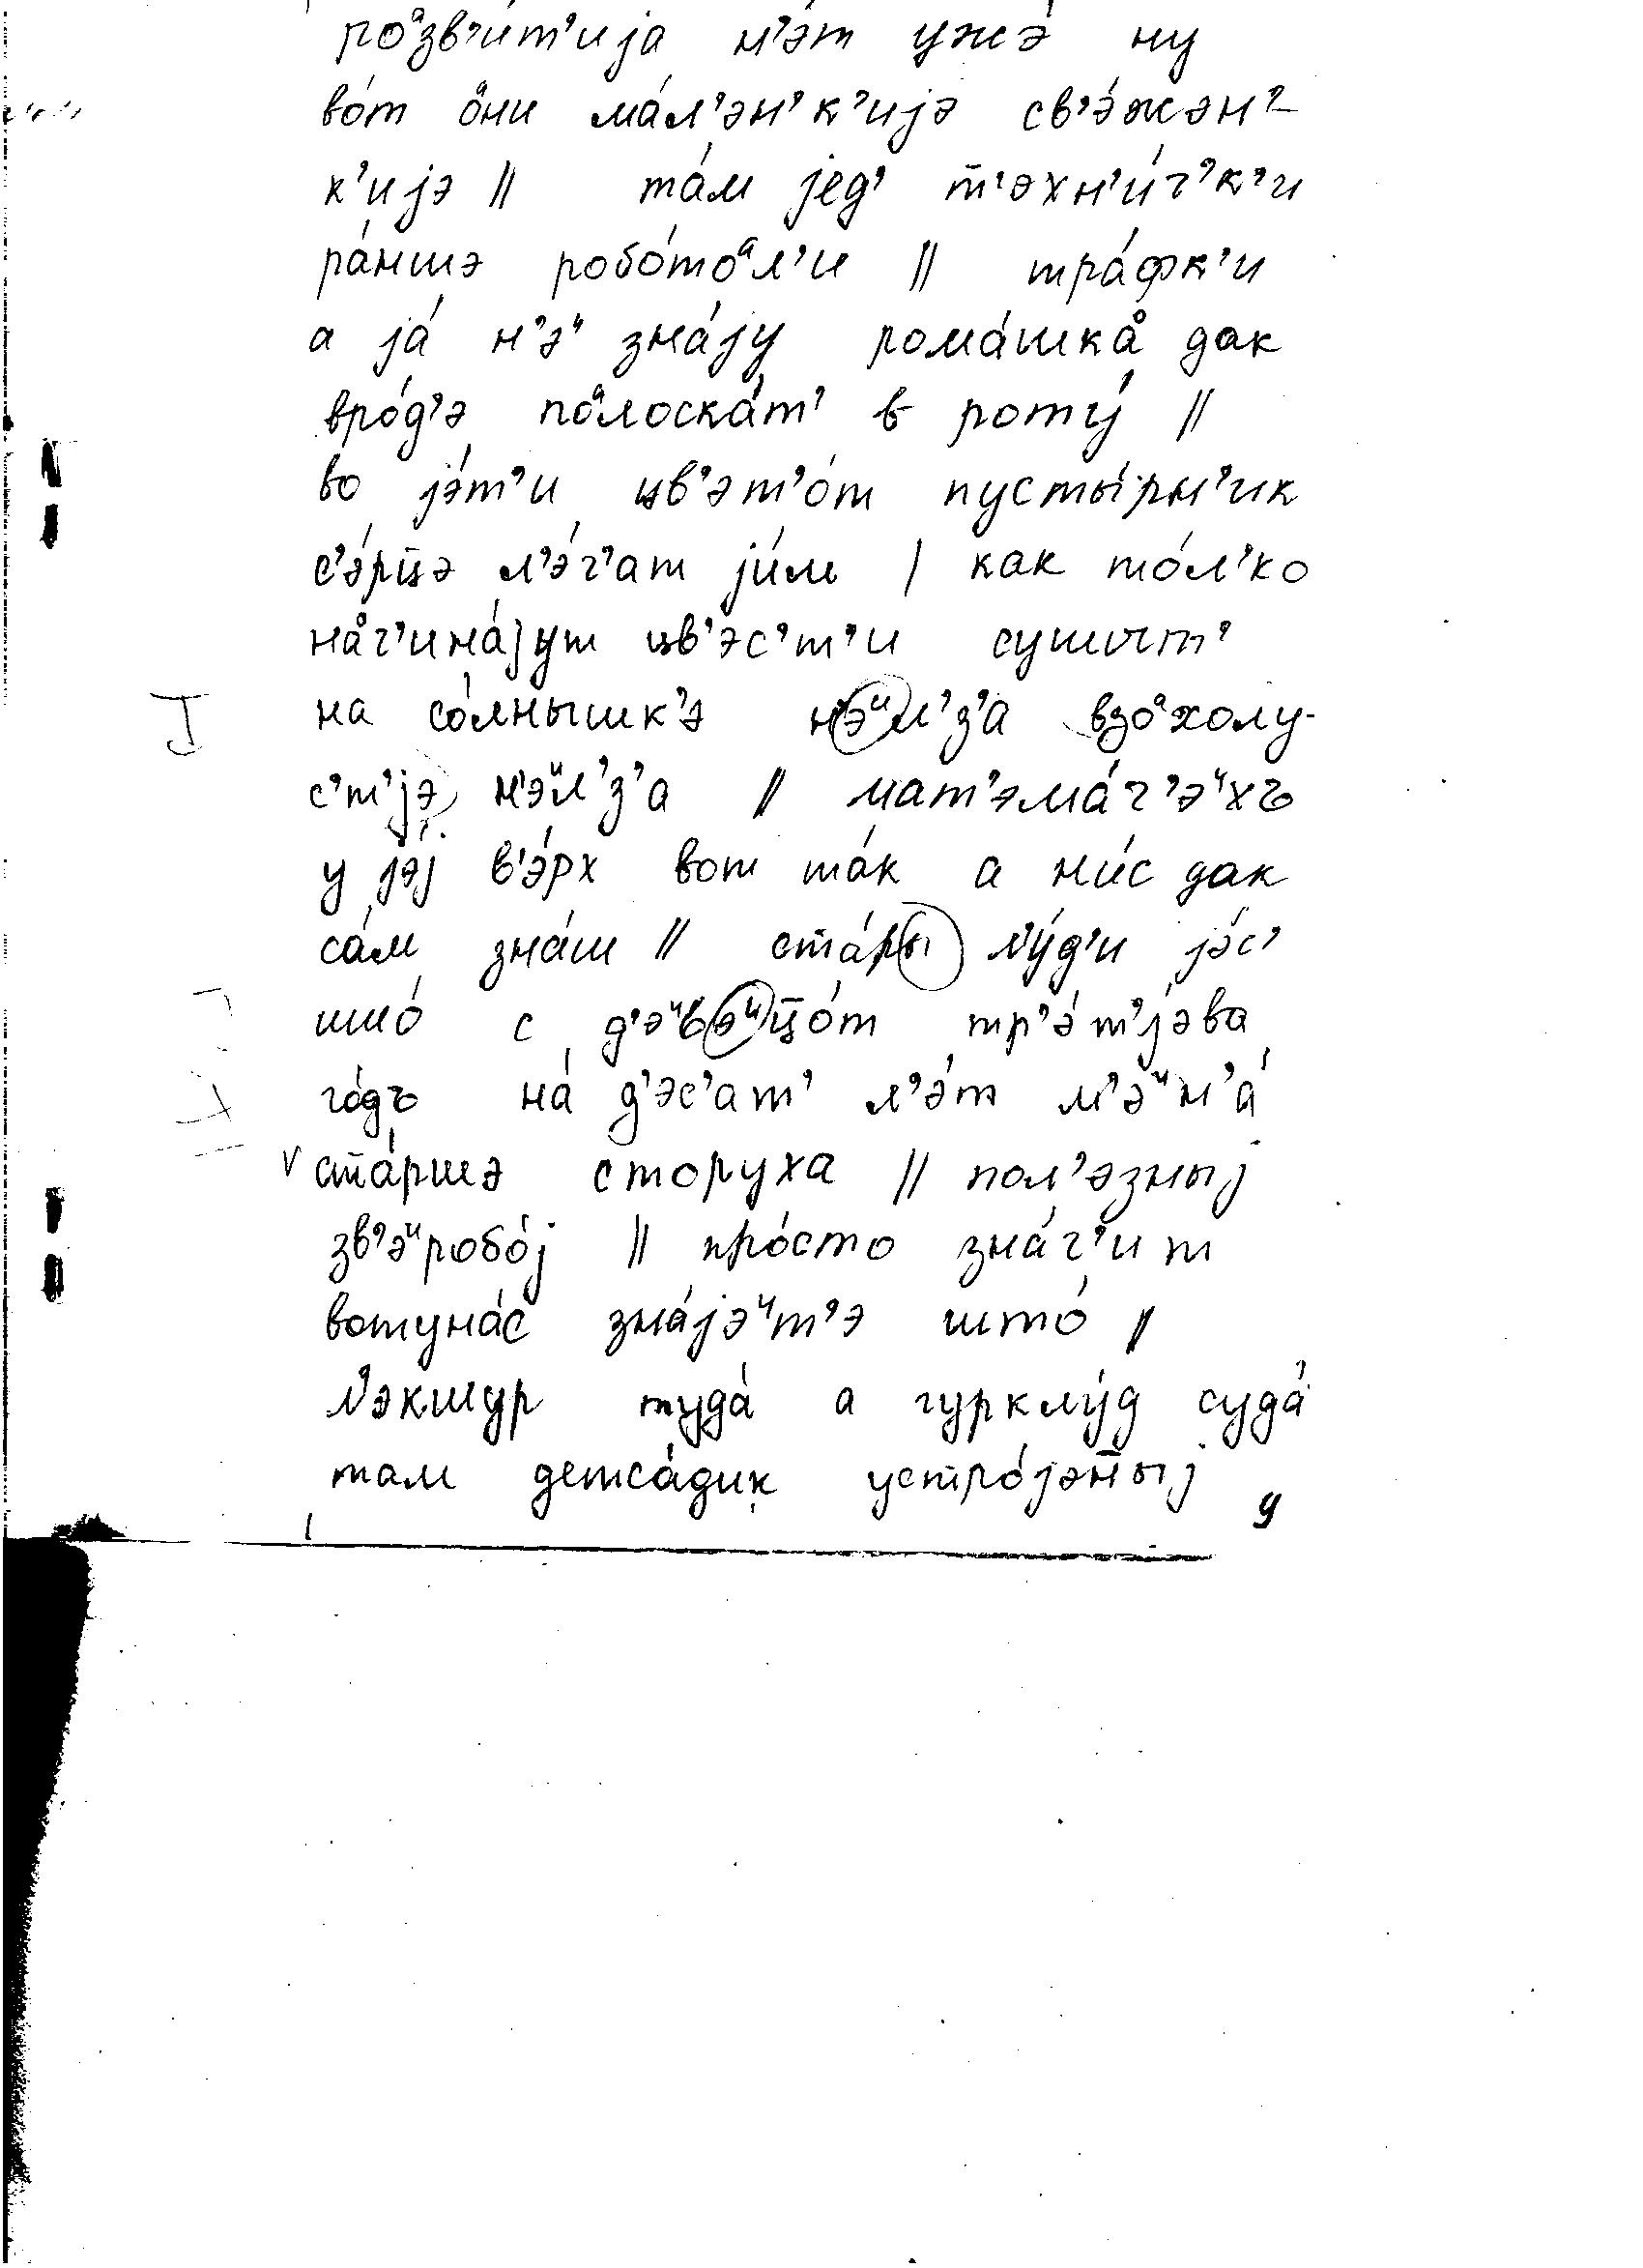 роᵃзв'и́т'иjа н'э́т ужэ́ ну
во́т о̊ни ма́л'эн'к'иjэ св'э́жэн'-
к'иjэ || та́м jед' т̄'эхн'и́ч'к'и
ра́ншэ робо́тоᵃл'и || тра́фк'и
а jа́ н'эᶣ зна́jу рома́шка̊ дак
вро́д'э поᵃлоска́т' в роту́ ||
во jэ́т'и цв'эт'о́т пусты́рн'ик
с'э́рц̄э л'э́ч'ат jи́м | как то́л'ко
на̊ч'ина́jут цв'эс'т'и сушыт'
на со́лнышк'э нэᶣл'з'а взоᵃхолу-
с'т'jэ н'эᶣл'з'а || мат'эма́ч'эᶣхъ
у jэ́j в'э́рх вот та́к а ни́с дак
са́м зна́ш || ста́ры л'у́д'и jэ́с'
што́ с д'эᶣвэᶣц̄о́т тр'э́т'jэва
го́дъ на́ д'эс'ат' л'э́т м'эᶣн'а́
ста́ршэ сторуха || пол'эзныj
зв'эᶣробо́j || про́сто зна́ч'ит
вотуна́с зна́jэᶣт'э што́ ||
л'экшур туда́ а гурклу́д суда́
там детса́дик устро́jэн̄ыj
9